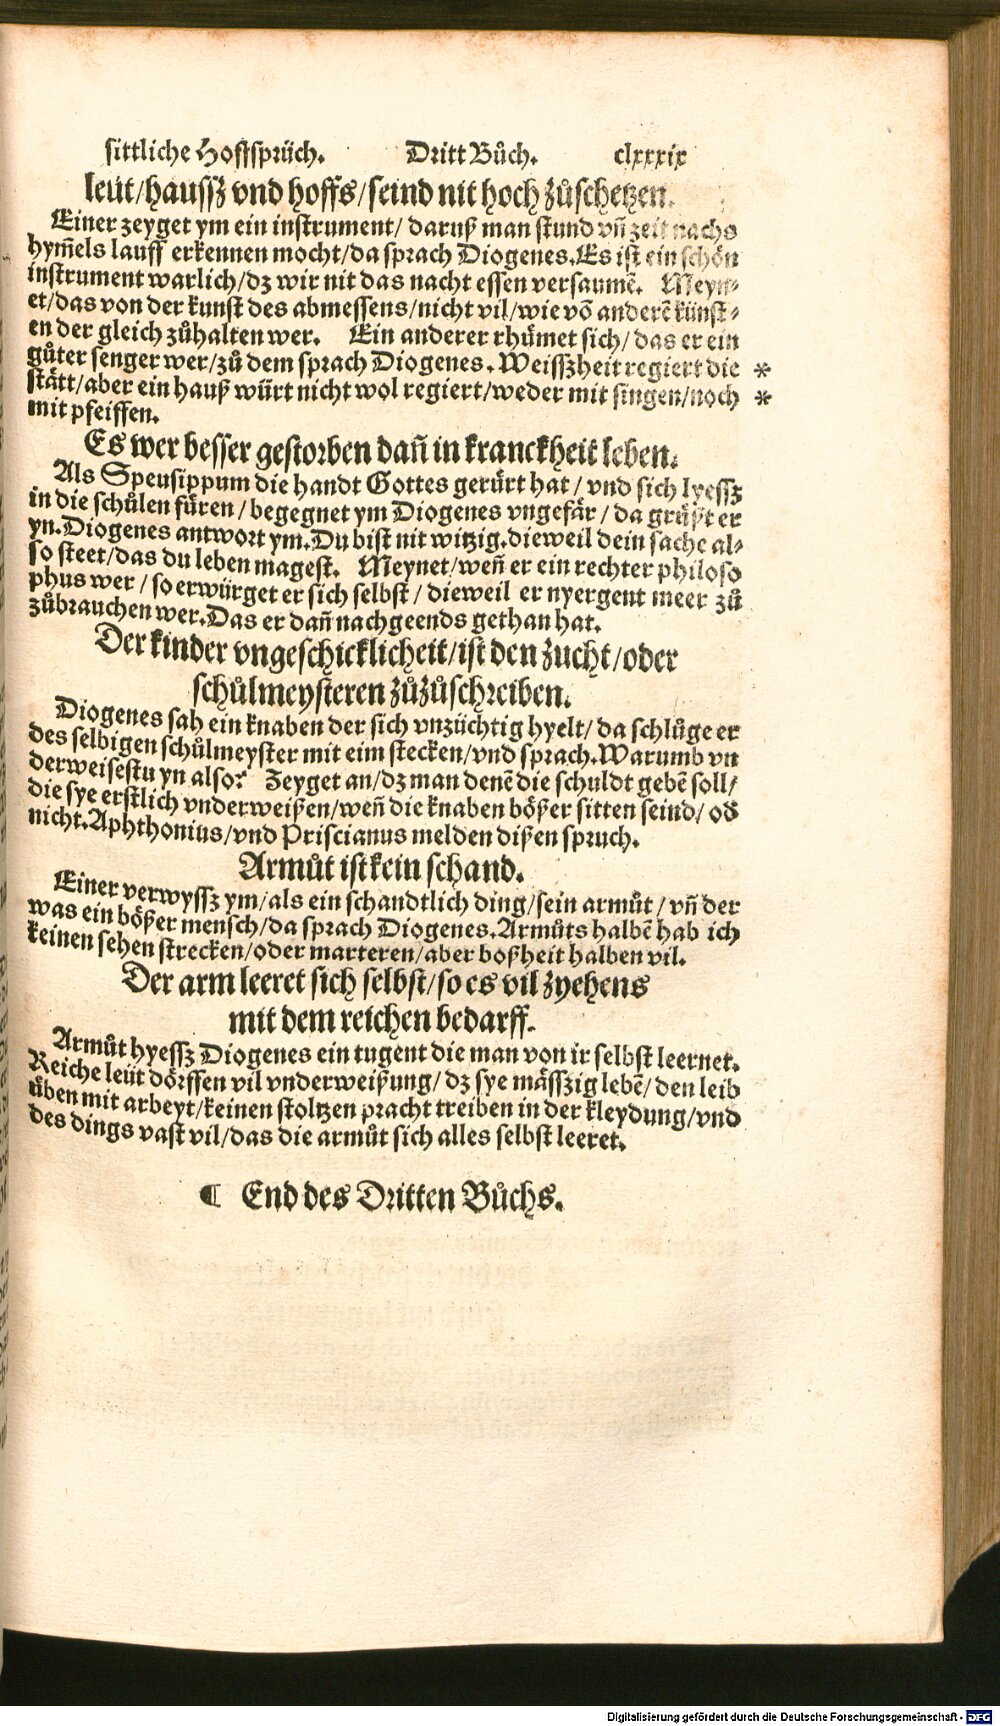 sittliche Hoffsprüch. Dritt Bůch. clxxxix
leüt/haussz vnd hoffs/seind nit hoch zůschetzen.
Einer zeyget ym ein instrument/ daruß man stund vñ zeit nachs
hym̃els lauff erkennen mocht/da sprach Diogenes. Es ist ein schön
instrument warlich/dz wir nit das nacht essen versaumẽ. Meyn⸗
et/das von der kunst des abmessens/nicht vil/wie võ anderẽ künst⸗
en der gleich zůhalten wer. Ein anderer rhümet sich/das er ein
gůter senger wer/zů dem sprach Diogenes. Weisszheit regiert die *
stätt/aber ein hauß würt nicht wol regiert/weder mit singen/noch *
mit pfeiffen.
Es wer besser gestorben dañ in kranckheit leben.
Als Speusippum die handt Gottes gerürt hat/ vnd sich lyessz
in die schůlen füren/begegnet ym Diogenes vngefär/da grüßt er
yn. Diogenes antwort ym. Du bist nit witzig. dieweil dein sache al⸗
so steet/das du leben magest. Meynet/weñ er ein rechter philoso
phus wer/so erwürget er sich selbst/ dieweil er nyergent meer zů
zůbrauchen wer. Das er dañ nachgeends gethan hat.
Der kinder vngeschicklicheit/ist den zucht/oder
schůlmeysteren zůzůschreiben.
Diogenes sah ein knaben der sich vnzüchtig hyelt/da schlůge er
des selbigen schůlmeyster mit eim stecken/vnd sprach. Warumb vn
derweisestu yn also? Zeyget an/dz man denẽ die schuldt gebẽ soll/
die sye erstlich vnderweißen/weñ die knaben bößer sitten seind/ oď
nicht. Aphthonius/vnd Priscianus melden dißen spruch.
Armůt ist kein schand.
Einer verwyssz ym/als ein schandtlich ding/sein armůt/vñ der
was ein bößer mensch/da sprach Diogenes. Armůts halbẽ hab ich
keinen sehen strecken/oder marteren/aber boßheit halben vil.
Der arm leeret sich selbst/so es vil zyehens
mit dem reichen bedarff.
Armůt hyessz Diogenes ein tugent die man von ir selbst leernet.
Reiche leüt dörffen vil vnderweißung/dz sye mässzig lebẽ/den leib
üben mit arbeyt/keinen stoltzen pracht treiben in der kleydung/vnd
des dings vast vil/das die armůt sich alles selbst leeret.
¶ End des Dritten Bůchs.
Digitalisierung gefördert durch die Deutsche Forschungsgemeinschaft - DFG